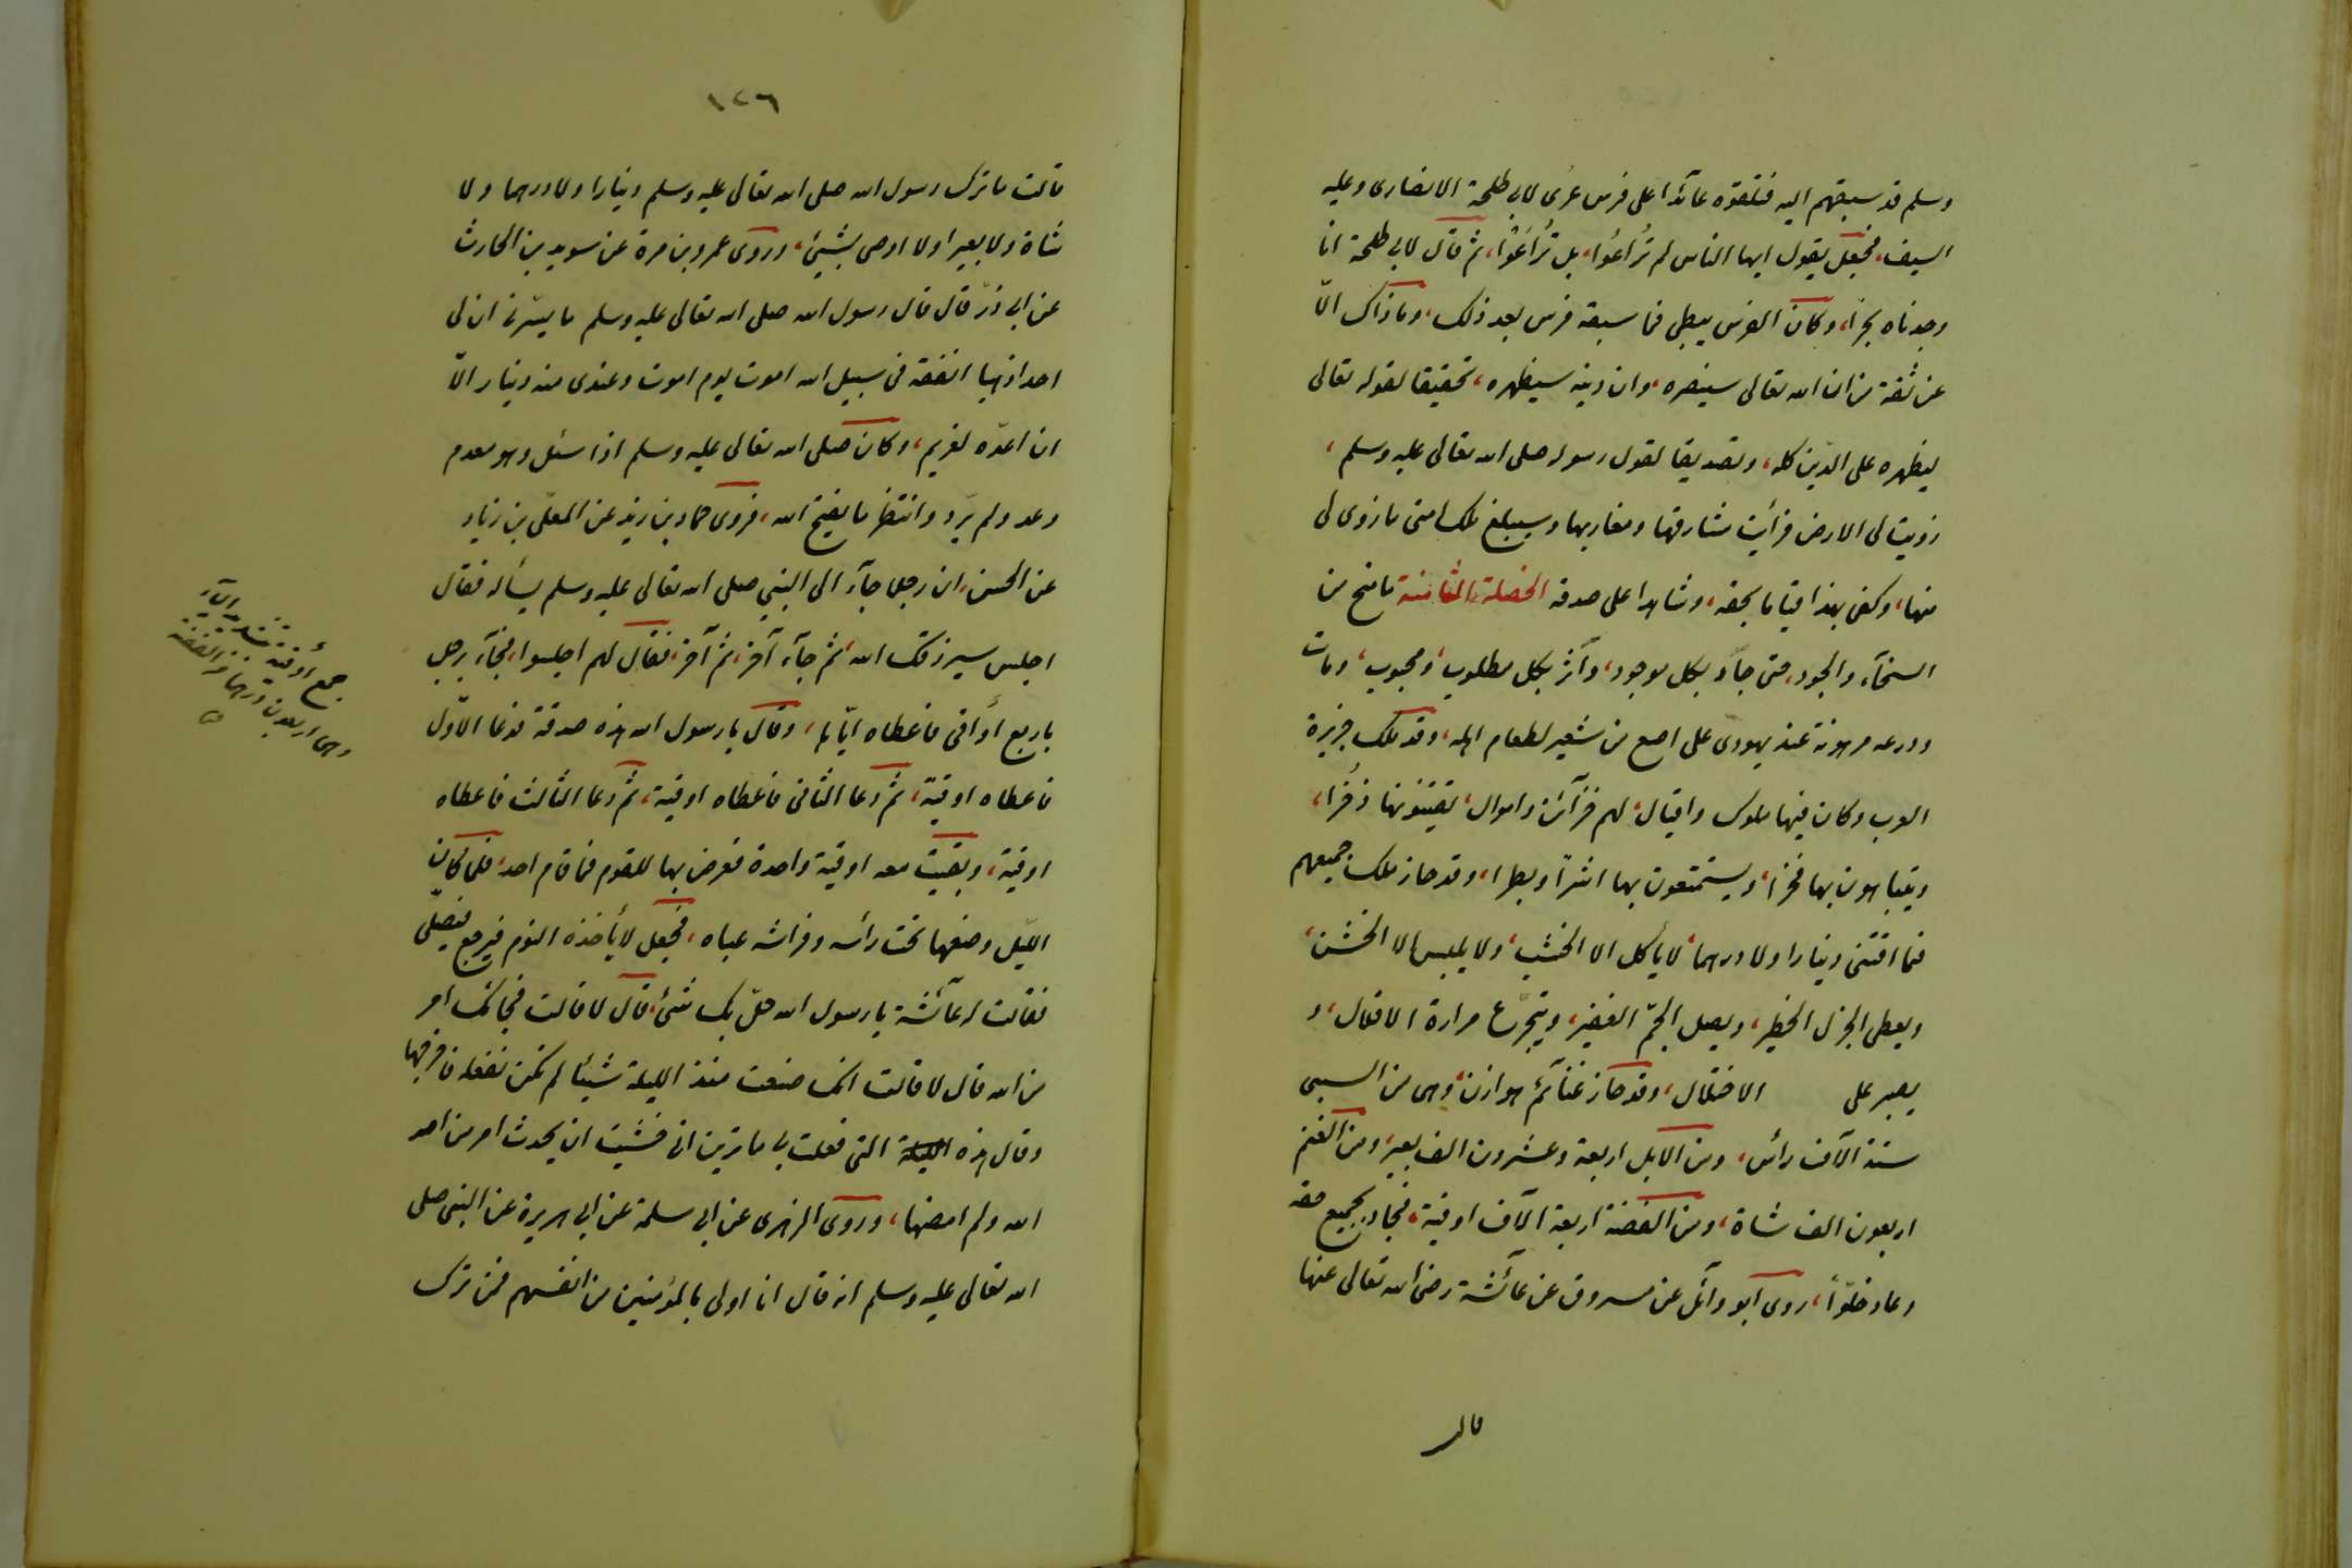 وسلم قد سبقهم اليه فتلقوه عائدا على فرس عرى لابى طلحة الانصارى وعليه
السيف، فجعل يقول ايها الناس لم تُراعُوا، بل تُراعُوا، ثم قال لابى طلحة انا
وجدناه بحرا، وكان الفرس يبطئ فما سبقه فرس بعد ذلك، وما ذاك الّا
عن ثقة من ان الله تعالى سينصره، وان دينه سيظهره، تحقيقا لقوله تعالى
ليظهره على الدّين كله، وتصديقا لقول رسوله صلى الله تعالى عليه وسلم،
زويت لى الارض فرأيت مشارقها ومغاربها وسيبلغ ملك امتى ما زوى لى
منها، وكفى بهذا قياما بحقه، وشاهدا على صدقه الخصلة الثامنة ما منح من
السخآء والجود، حتى جآد بكل موجود، وآثر بكل مطلوب، ومحبوب، ومات
ودرعه مرهونة عند يهودى على اصع من شعير لطعام اهله، وقد ملك جزيرة
العرب وكان فيها ملوك واقيال، لهم خزآئن واموال، يقتنونها ذُخرا،
ويتباهون بها فخرا، ويستمتعون بها اشرا وبطرا، وقد حاز ملك جميعهم
فما اقتنى دينارا ولا درهما، لا يأكل الا الخشب، ولا يلبس الا الخشن،
ويعطى الجزل الخطير، ويصل الجمّ الغفير، ويتجرّع مرارة الاقلال، و
يصبر على الاختلال، وقد حاز غنآئم هوازن، وهى من السبى
ستة آلاف رأس، ومن الابل اربعة وعشرون الف بعير، ومن الغنم
اربعون الف شاة، ومن الفضة اربعة آلاف اوقية، فجاد بجميع حقه
وعاد خلوّا، روى ابو وآئل عن مسروق عن عآئشة رضى الله تعالى عنها
قالت
١٢٦
قالت ما ترك رسول الله صلى الله تعالى عليه وسلم دينارا ولا درهما ولا
شاة ولا بعيرا ولا اوصى بشيئ، وروى عمرو بن مرة عن سويد بن الحارث
عن ابى ذرّ قال قال رسول الله صلى الله تعالى عليه وسلم ما يسّرنى ان لى
احدا ذهبا انفقه فى سبيل الله اموت يوم اموت وعندى منه دينار الّا
ان اعدّه لغريم، وكان صلى الله تعالى عليه وسلم اذا سئل وهو معدم
وعد ولم يرّد وانتظر ما يفتح الله، فروى حماد بن زيد عن المعلّى بن زياد
عن الحسن، ان رجلا جآء الى النبى صلى الله تعالى عليه وسلم يسأله فقال
اجلس سيرزقك الله، ثم جآء آخر، ثم آخر، فقال لهم اجلسوا، فجآء رجل
باربع أواقى فاعطاه ايّاها، وقال يا رسول الله هذه صدقة فدعا الاوّل
فاعطاه اوقية، ثم دعا الثانى فاعطاه اوقية، ثم دعا الثالث فاعطاه
اوقية، وبقيت معه اوقية واحدة فعرض بها للقوم فما قام احد، فلما كان
الليل وضعها تحت رأسه وفراشه عباه، فجعل لا يأخذه النوم فيرجع فيصلّى
فقالت له عآئشة يا رسول الله حلّ بك شئ، قال لا قالت فجائك امر
من الله قال لا قالت انك صنعت منذ الليلة شيئا لم تكن تفعله فاخرجها
وقال هذه الليلة التى فعلت بى ما ترين انى خشيت ان يحدث امر من امر
الله ولم امضها، وروى الزهرى عن ابى سلمة عن ابى هريرة عن النبى صلى
الله تعالى عليه وسلم انه قال انا اولى بالمؤمنين من انفسهم فمن ترك
جمع أوقية بتشديد اليآء
وهى اربعون درهما من الفضة